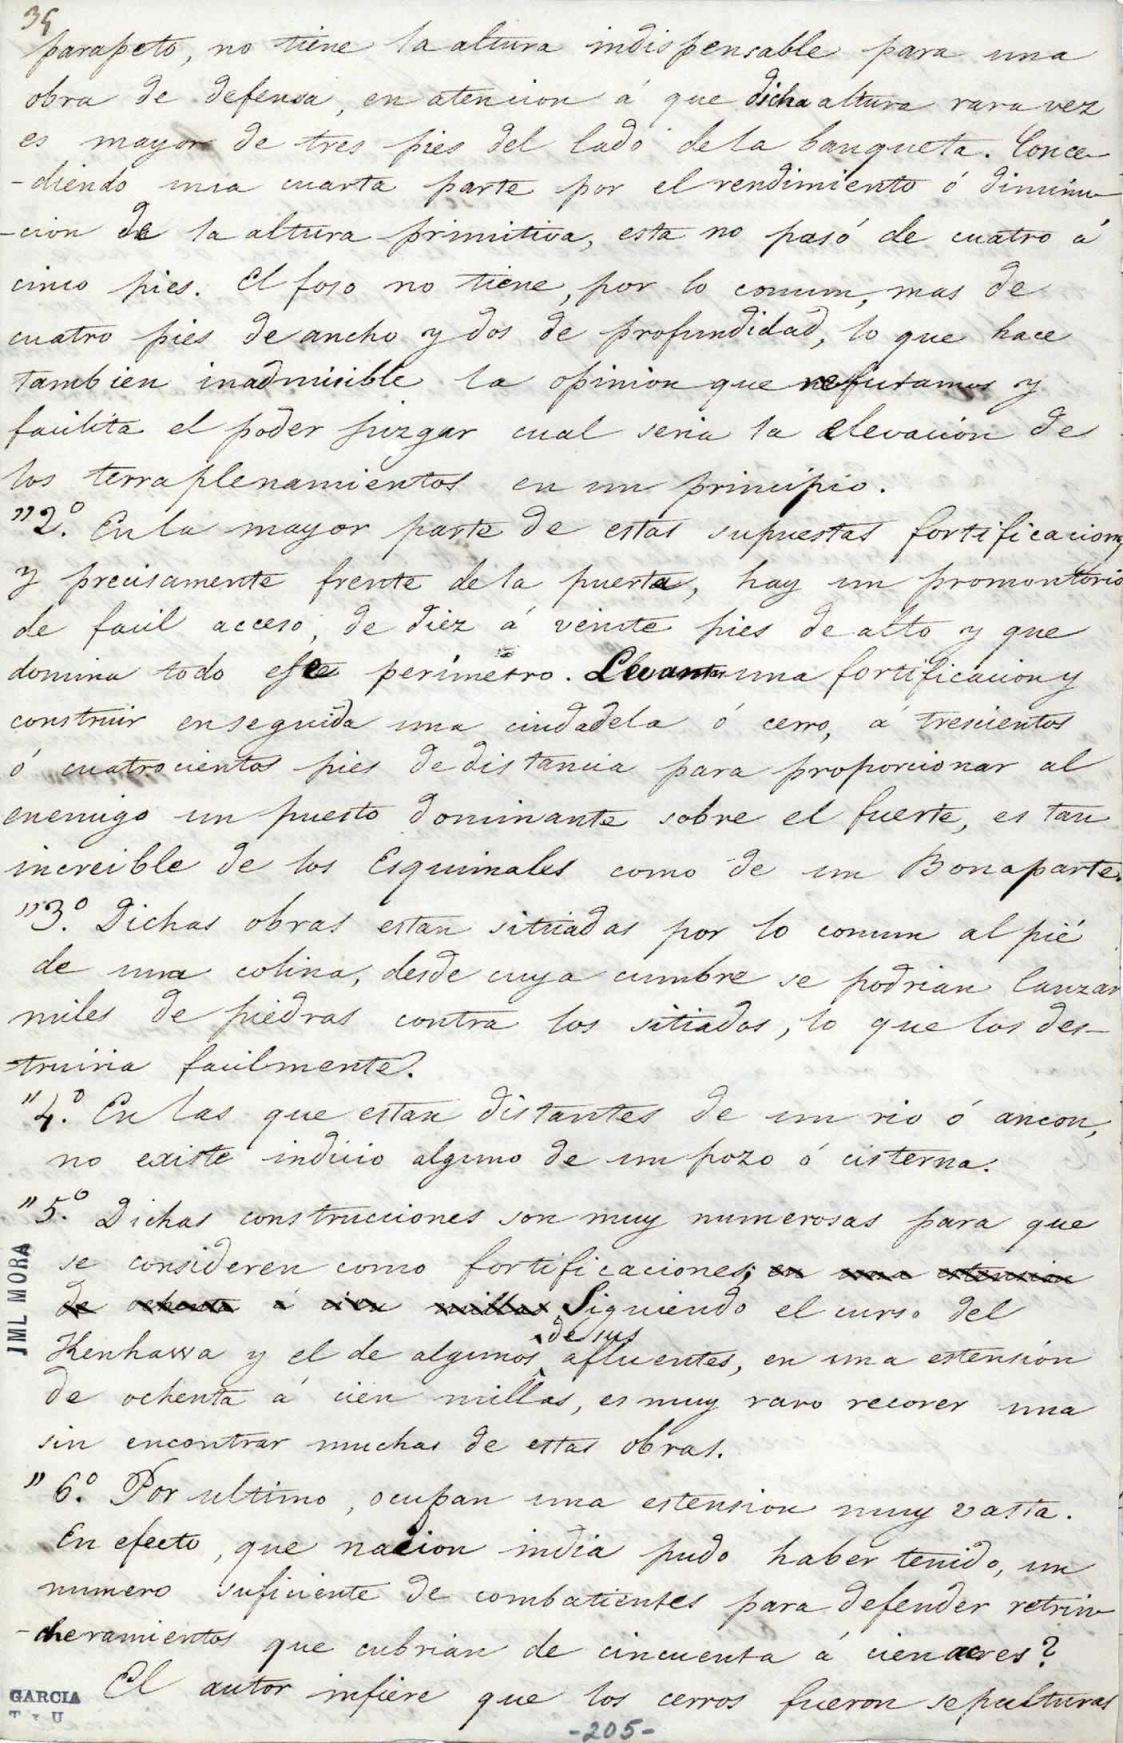 35
parapeto, no tiene la altura indispensable para una
obra de defensa, en atencion á que dicha altura rara vez
es mayor de tres pies del lado de la banqueta. Conce-
-diendo una cuarta parte por el rendimiento ó diminu-
-cion de la altura primitiva, esta no pasó de cuatro á
cinco pies. El foso no tiene, por lo comun, mas de
cuatro pies de ancho y dos de profundidad, lo que hace
tambien inadmisible la opinion que refutamos y
facilita el poder juzgar cual seria la elevacion de
los terraplenamientos en un principio.
"2º. En la mayor parte de estas supuestas fortificaciones
y precisamente frente de la puerta, hay un promontorio
de facil acceso, de diez á veinte pies de alto y que
domina todo ese perímetro. Levantar una fortificacion y
construir enseguida una ciudadela ó cerro, á trescientos
ó cuatrocientos pies de distancia para proporcionar al
enemigo un puesto dominante sobre el fuerte, es tan
increible de los Esquimales como de un Bonaparte.
"3º. Dichas obras estan situadas por lo comun al pié
de una colina, desde cuya cumbre se podrian lanzar
miles de piedras contra los sitiados, lo que los des-
-truiria facilmente.
"4º. En las que estan distantes de un rio ó ancon,
no existe indicio alguno de un pozo ó cisterna.
"5º. Dichas construcciones son muy numerosas para que
se consideren como fortificaciones; en una estension
de ochenta á cien millas Siguiendo el curso del
Kenhawa y el de algunos de sus afluentes, en una estension
de ochenta á cien millas, es muy raro recorer una
sin encontrar muchas de estas obras.
"6º. Por ultimo, ocupan una estension muy vasta.
En efecto, que nacion india pudo haber tenido, un
numero suficiente de combatientes para defender retrin-
-cheramientos que cubrian de cincuenta á cien acres?
El autor infiere que los cerros fueron sepulturas
-205-
JML MORA
GARCIA